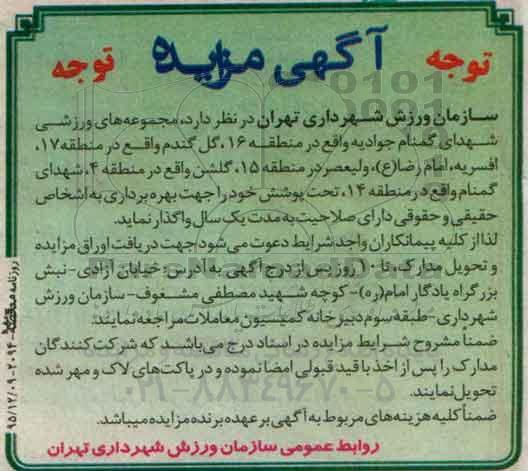 توجه آگهی مزایده توجه
سازمان ورزش شهرداری تهران در نظر دارد، مجموعه‌های ورزشی
شهدای گمنام جوادیه واقع در منطقه ۱۶، گل گندم واقع در منطقه ۱۷،
افسریه، امام رضا(ع)، ولیعصر در منطقه ۱۵، گلشن واقع در منطقه ۴، شهدای
گمنام واقع در منطقه ۱۴، تحت پوشش خود را جهت بهره برداری به اشخاص
حقیقی و حقوقی دارای صلاحیت به مدت یک سال واگذار نماید.
لذا از کلیه پیمانکاران واجد شرایط دعوت می شود جهت دریافت اوراق مزایده
و تحویل مدارک، تا ۱۰ روز پس از درج آگهی به آدرس: خیابان آزادی - نبش
بزرگراه یادگار امام(ره) - کوچه شهید مصطفی مشعوف - سازمان ورزش
شهرداری - طبقه سوم دبیرخانه کمیسیون معاملات مراجعه نمایند.
ضمناً مشروح شرایط مزایده در اسناد درج می‌باشد که شرکت کنندگان
مدارک را پس از اخذ با قید قبولی امضا نموده و در پاکت‌های لاک و مهر شده
تحویل نمایند.
ضمناً کلیه هزینه‌های مربوط به آگهی بر عهده برنده مزایده میباشد.
روابط عمومی سازمان ورزش شهرداری تهران
روزنامه ۲۰۹۴-۹۵/۱۲/۰۹
۰۲۱-۸۸۳۴۹۶۷۰-۵